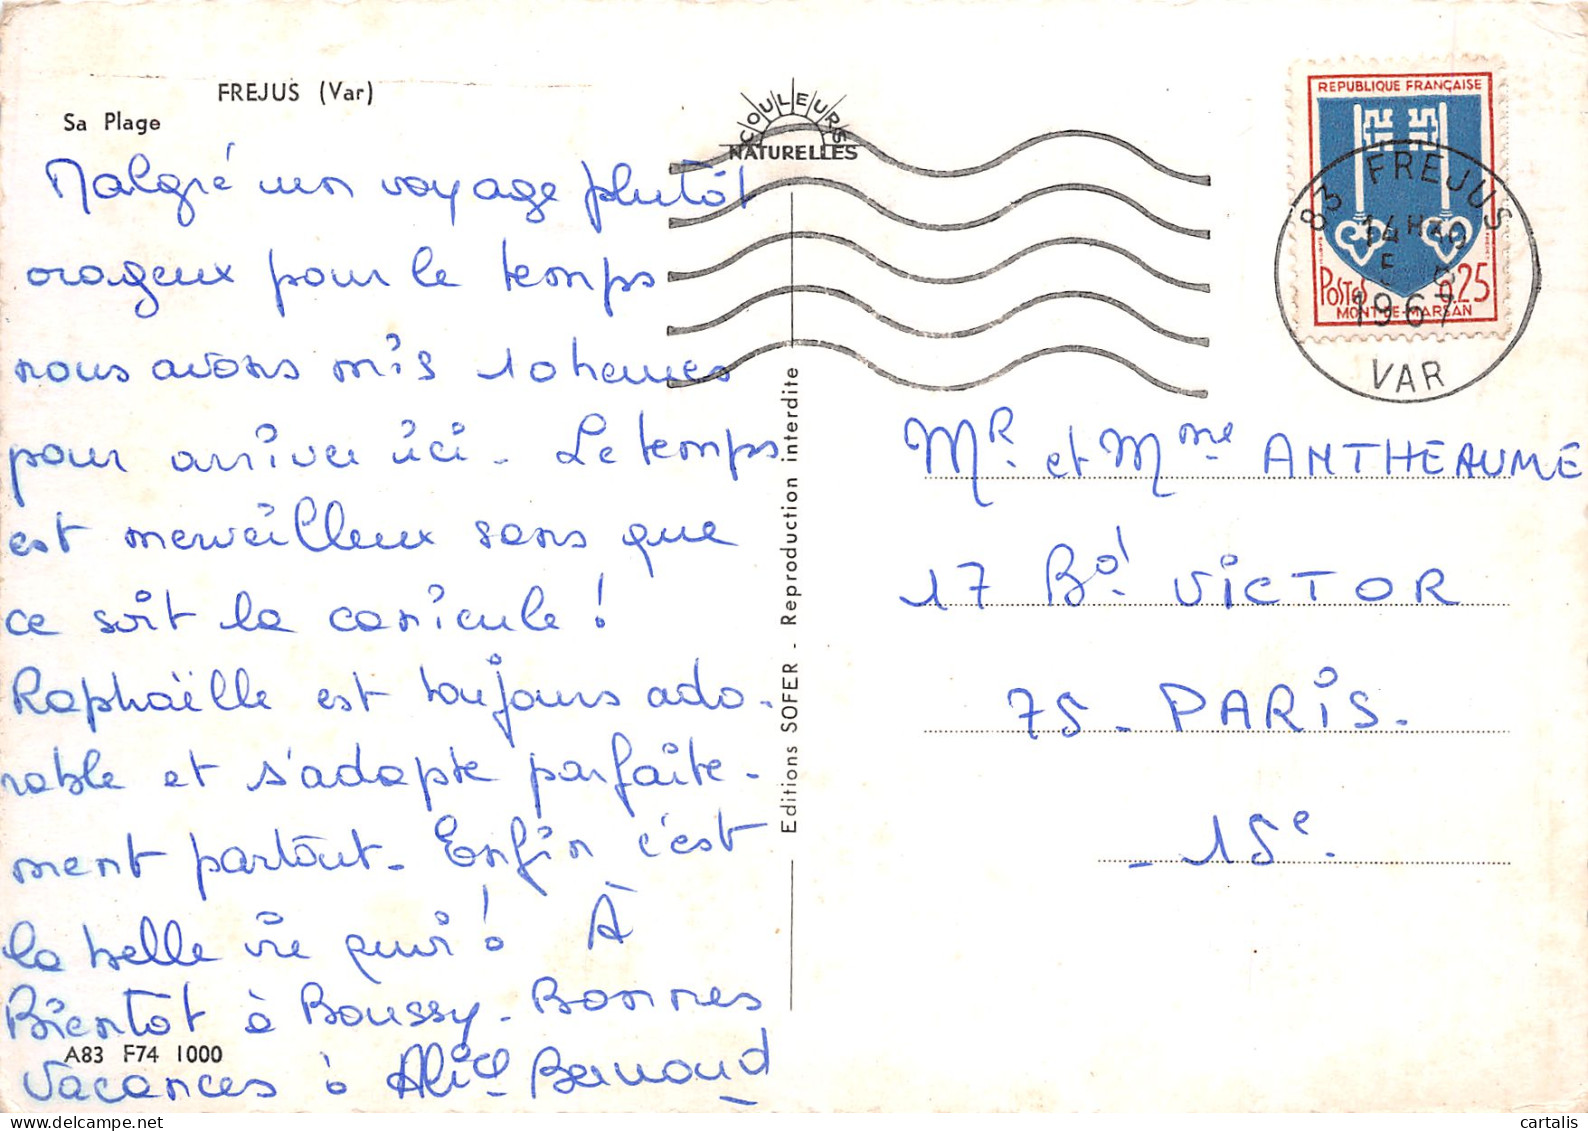 FREJUS (Var)
Sa Plage
Malgré un voyage plutôt
orageux pour le temps
nous avons mis 10 heures
pour arriver ici. Le temps
est merveilleux sans que
ce soit la canicule !
Raphaëlle est toujours ado-
rable et s'adapte parfaite-
ment partout. Enfin c'est
la belle vie quoi ! À
Bientôt à Boussy. Bonnes
Vacances à
Bernard
A83 F74 1000
COULEURS
NATURELLES
Editions SOFER - Reproduction interdite
REPUBLIQUE FRANÇAISE
POSTES 0,25
MONT-DE-MARSAN
83 FREJUS
14H30
5
1967
VAR
MR. et Mme ANTHEAUME
17 Bd. VICTOR
75. PARIS.
- 15e.
cartalis